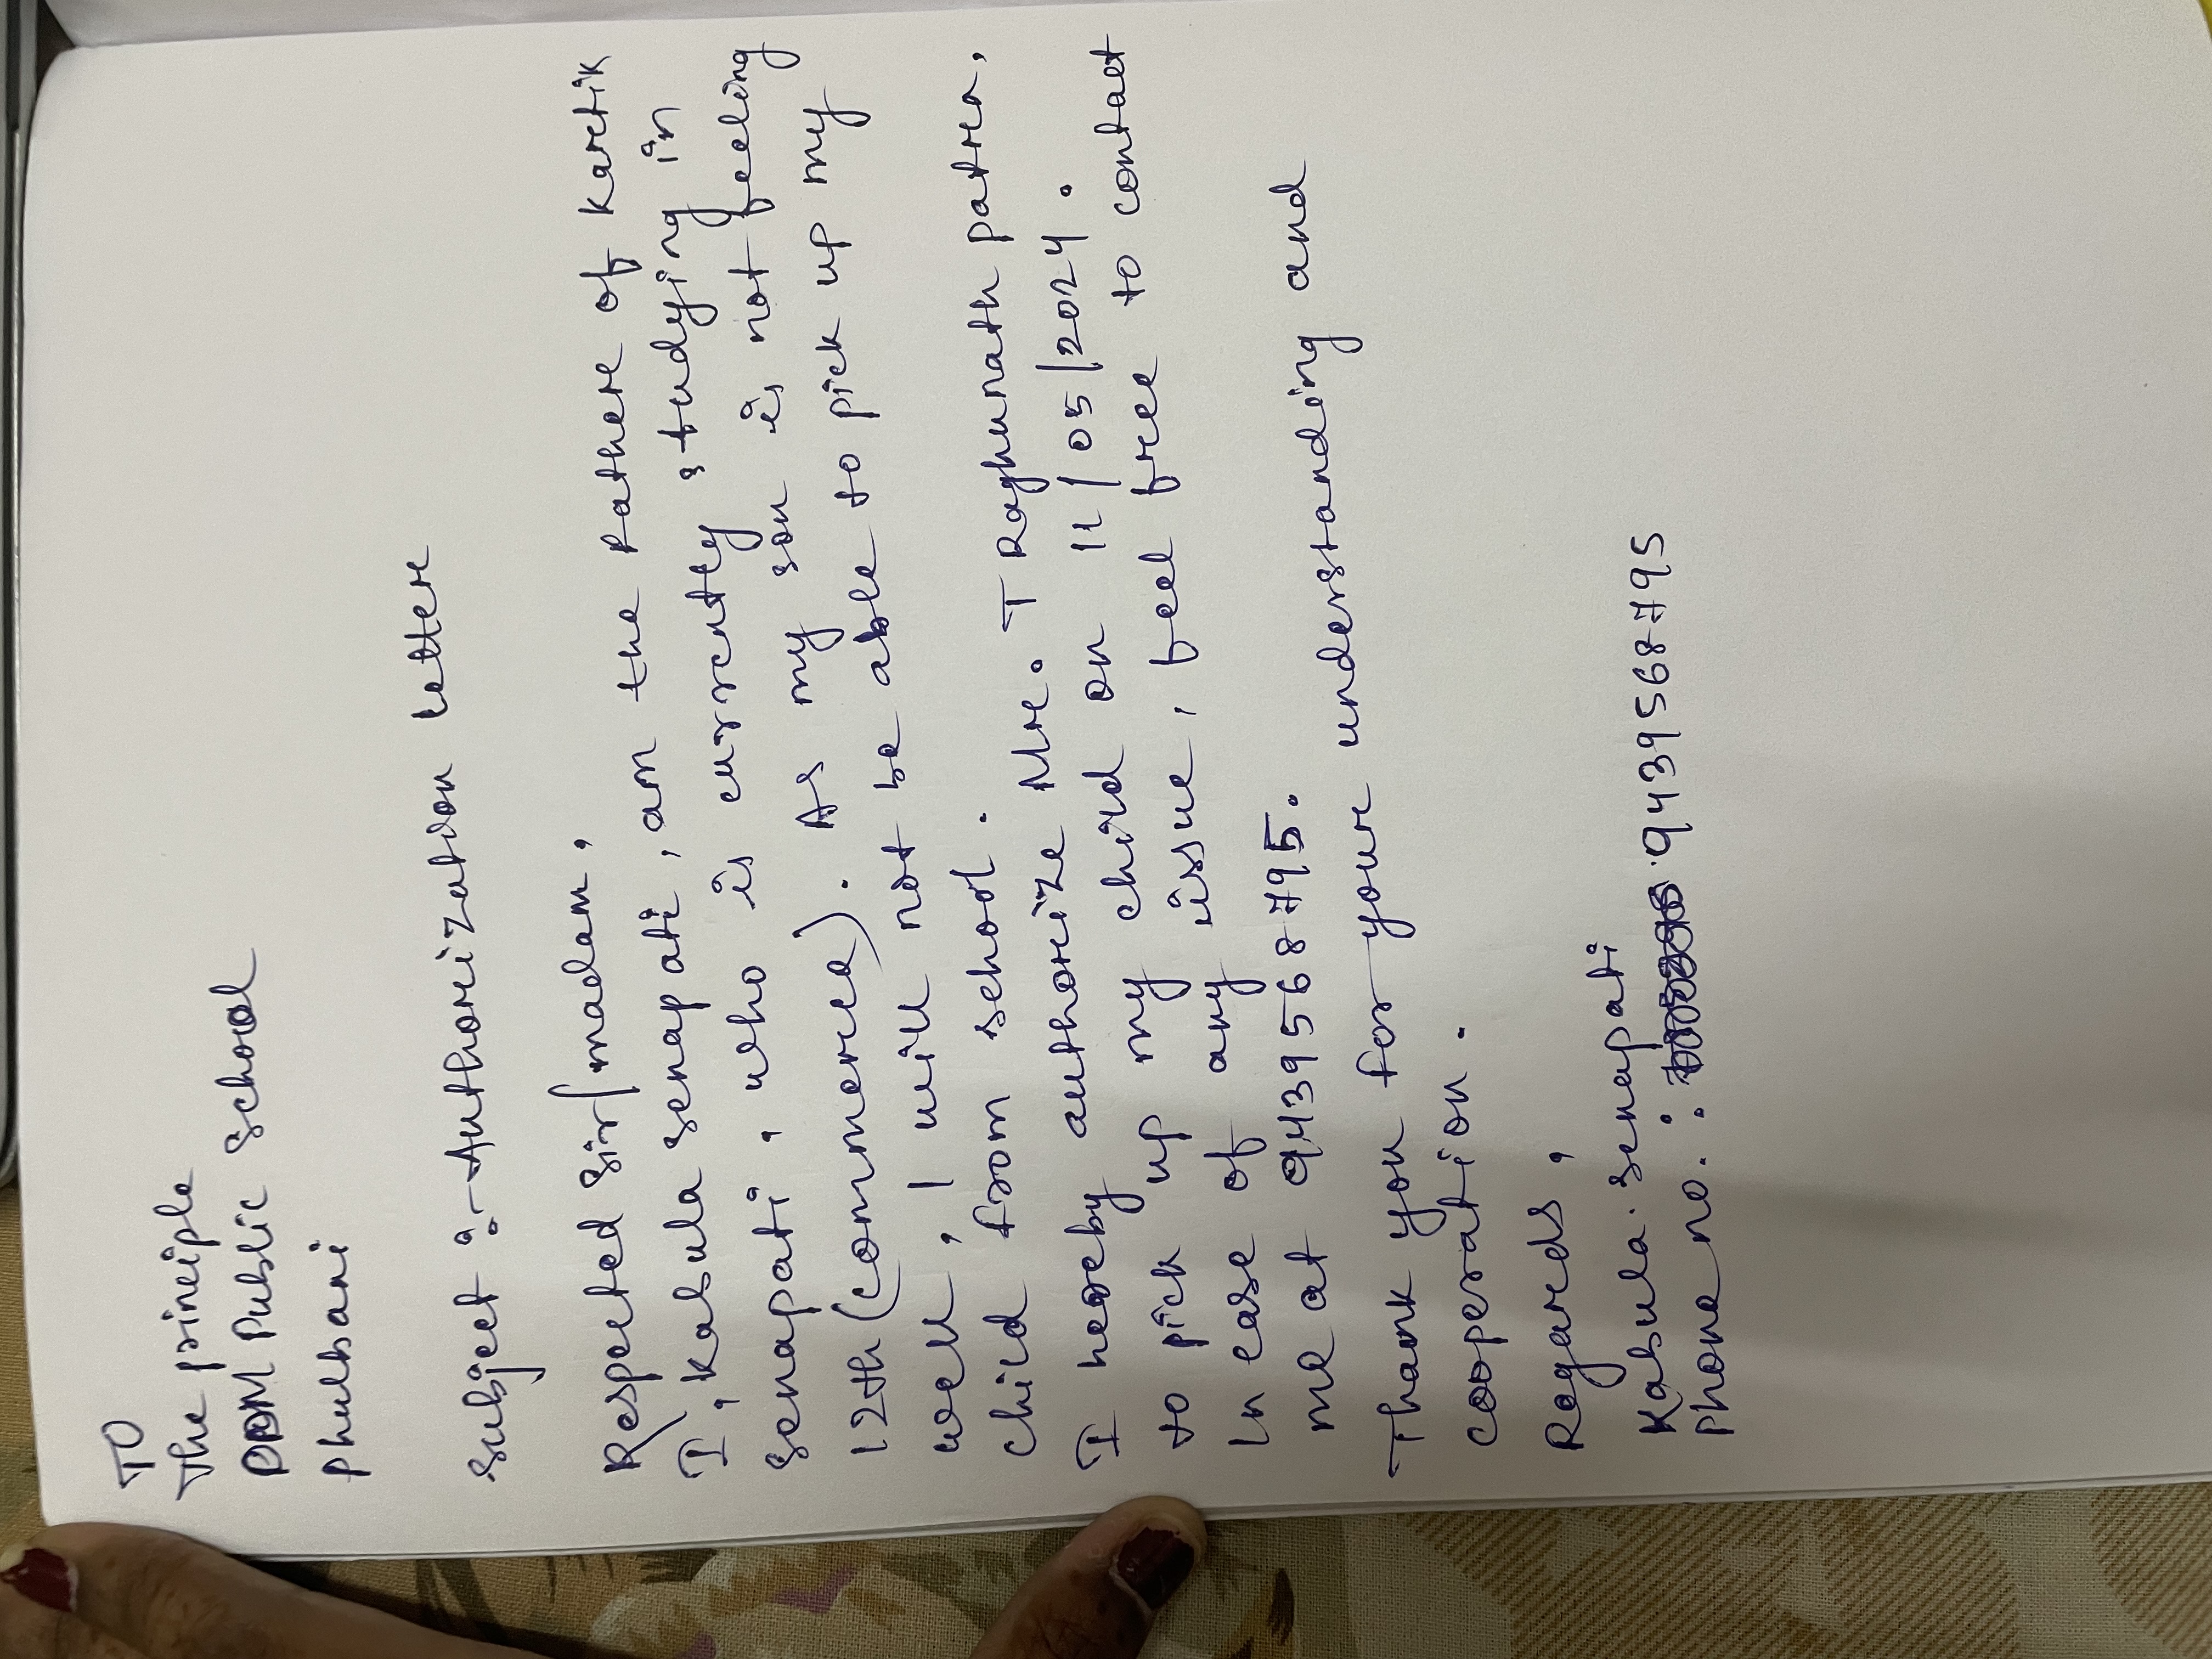 TO
The principle
DDM Public School
Phulbani
Subject :- Authorization letter
Respected Sir/madam,
I, Kabula Senapati, am the Father of Kartik
Senapati, who is currently studying in
12th (commerce). As my son is not feeling
well, I will not be able to pick up my
child from school.
I hereby authorize Mr. T Raghunath patra,
to pick up my child on 11/05/2024.
In case of any issue, feel free to contact
me at 9439568795.
Thank you for your understanding and
cooperation.
Regards,
Kabula. senapati
Phone no. : 9439568795